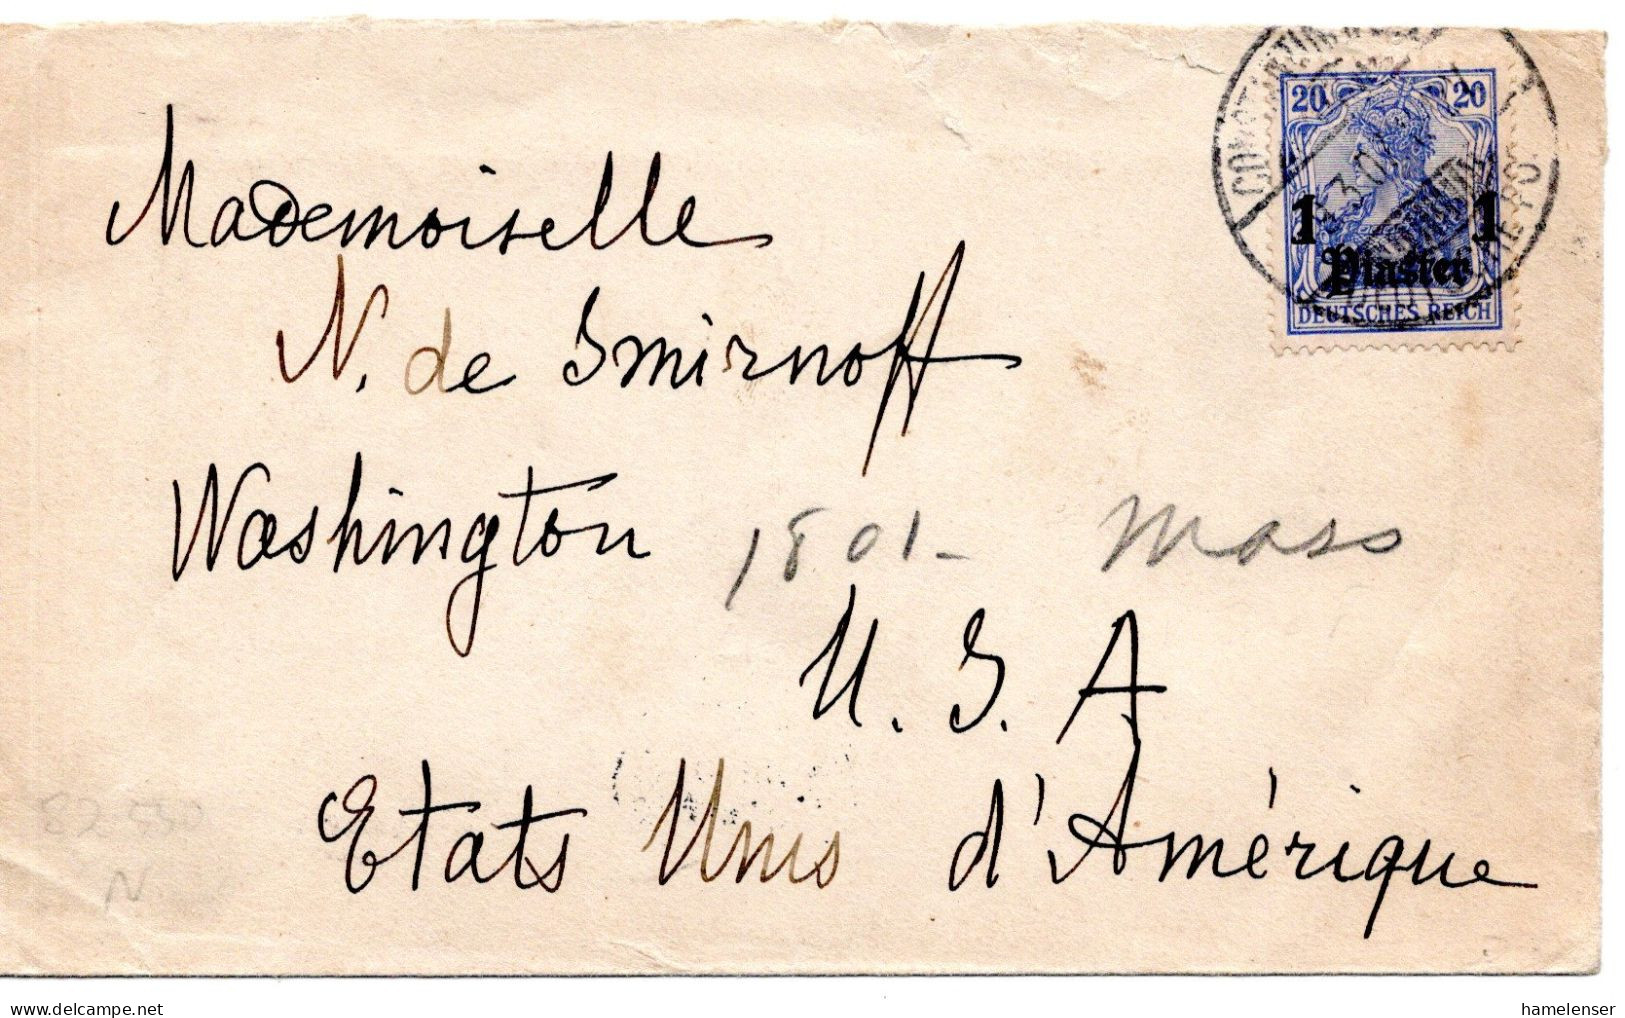 20 20
1 1
Piaster
DEUTSCHES REICH
Mademoiselle
N. de Smirnoff
Washington 1801- Mass
U. S. A
Etats Unis d'Amérique
82 550
N
www.delcampe.net
hamelenser